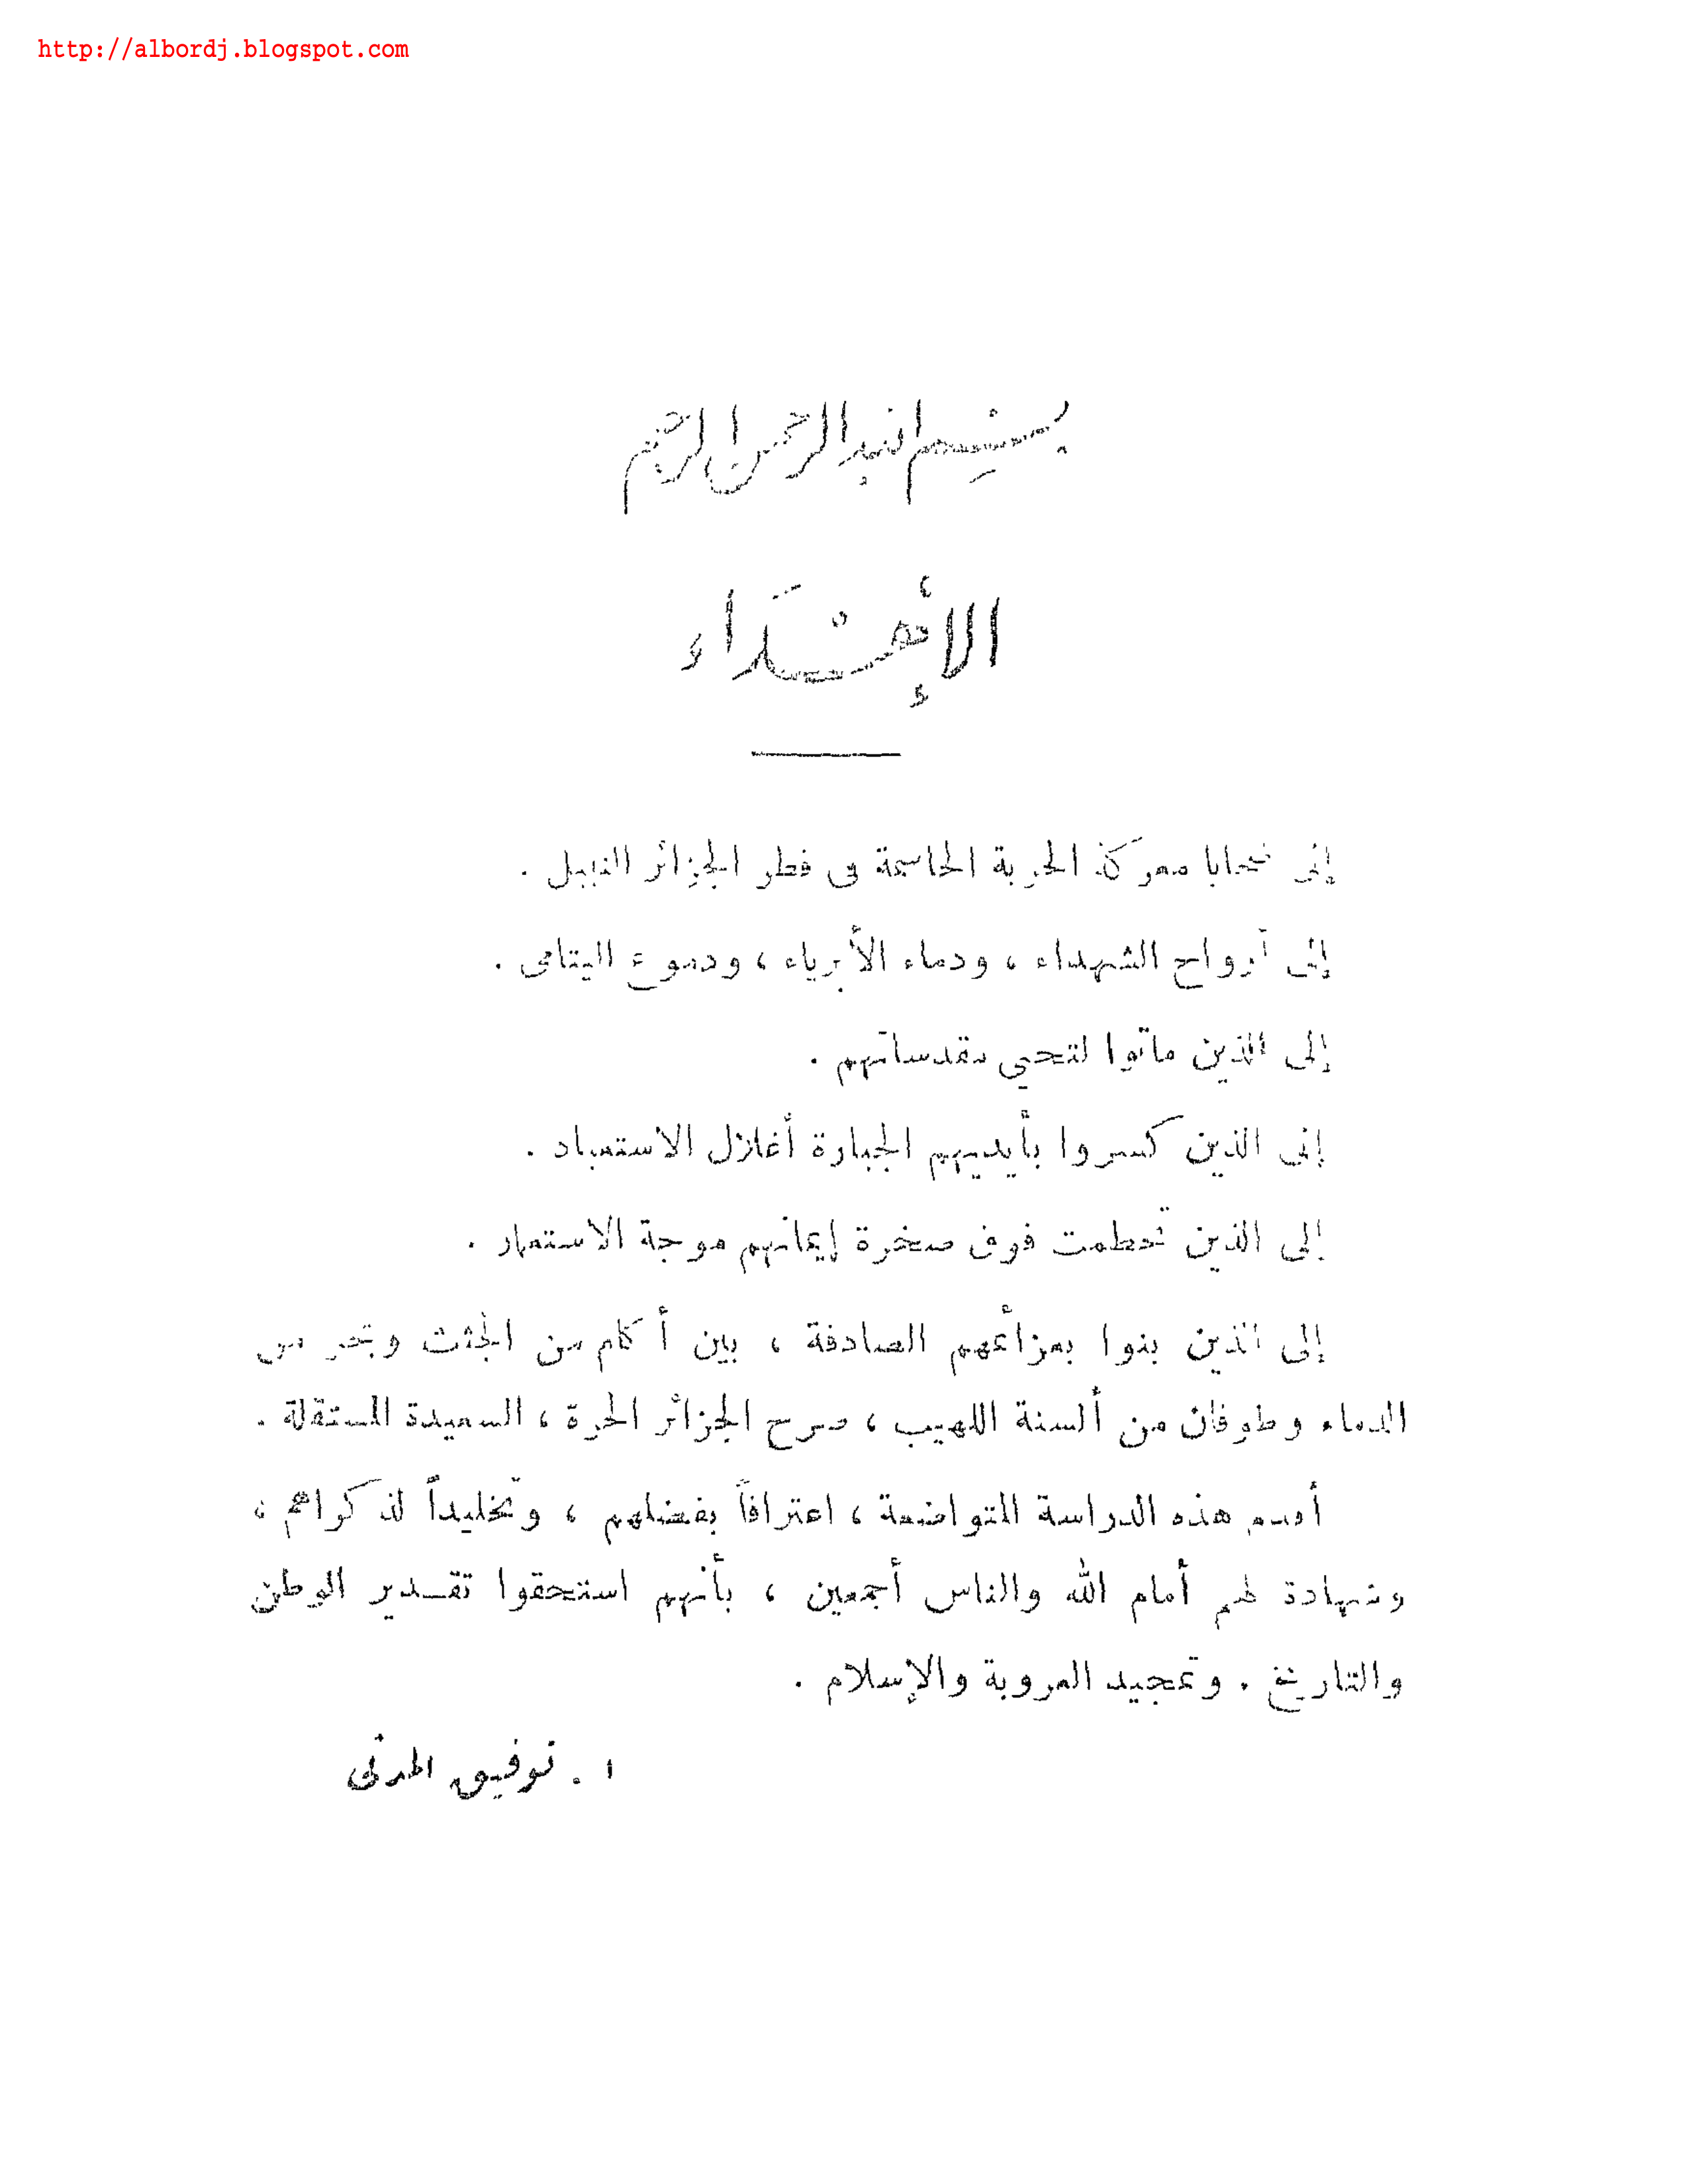 http://albordj.blogspot.com
بسم الله الرحمن الرحيم
الإهداء
إلى ضحايا معركة الحرية الحاسمة في قطر الجزائر النبيل .
إلى أرواح الشهداء ، ودماء الأبرياء ، ودموع اليتامى .
إلى الذين ماتوا لتحيى مقدساتهم .
إلى الذين كسروا بأيديهم الجبارة أغلال الاستعباد .
إلى الذين تحطمت فوق صخرة إيمانهم موجة الاستعمار .
إلى الذين بنوا بعزائمهم الصادقة ، بين أكام من الجثث وبحر من
الدماء وطوفان من ألسنة اللهيب ، صرح الجزائر الحرة ، السعيدة المستقلة .
أقدم هذه الدراسة المتواضعة ، اعترافاً بفضلهم ، وتخليداً لذكراهم ،
وشهادة لهم أمام الله والناس أجمعين ، بأنهم استحقوا تقدير الوطن
والتاريخ . وتمجيد العروبة والإسلام .
ا . توفيق المدني